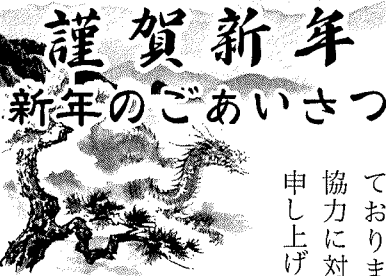 謹賀新年
新年のごあいさつ
ておりま
協力に対
申し上げ